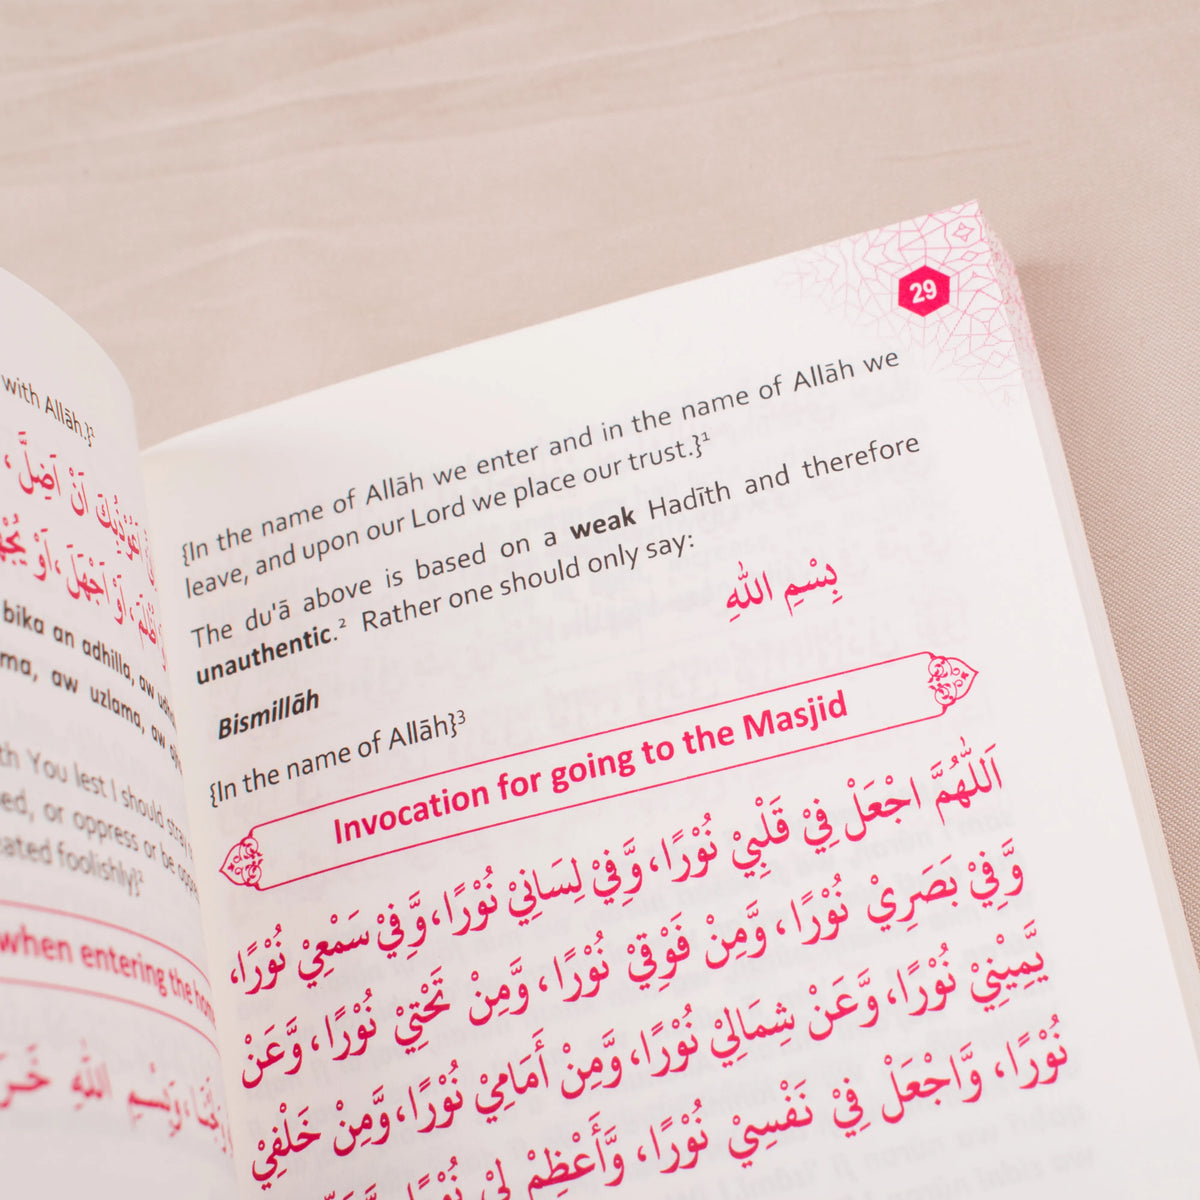 with Allāh.}¹
اَعُوْذُبِكَ اَنْ اَضِلَّ،
اَوْ اَجْهَلَ، اَوْ
bika an adhilla, aw
aw uzlama, aw
You lest I should stray
or oppress or be
foolishly}²
when entering the
وَبِسْمِ اللّٰهِ
29
{In the name of Allāh we enter and in the name of Allāh we
leave, and upon our Lord we place our trust.}¹
The du'ā above is based on a weak Hadīth and therefore
unauthentic.² Rather one should only say:
بِسْمِ اللّٰهِ
Bismillāh
{In the name of Allāh}³
Invocation for going to the Masjid
اَللّٰهُمَّ اجْعَلْ فِيْ قَلْبِيْ نُوْرًا، وَّفِيْ لِسَانِيْ نُوْرًا، وَّفِيْ سَمْعِيْ نُوْرًا،
وَّفِيْ بَصَرِيْ نُوْرًا، وَّمِنْ فَوْقِيْ نُوْرًا، وَّمِنْ تَحْتِيْ نُوْرًا، وَّعَنْ
يَّمِيْنِيْ نُوْرًا، وَّعَنْ شِمَالِيْ نُوْرًا، وَّمِنْ أَمَامِيْ نُوْرًا، وَّمِنْ خَلْفِيْ
نُوْرًا، وَّاجْعَلْ فِيْ نَفْسِيْ نُوْرًا، وَّأَعْظِمْ لِيْ